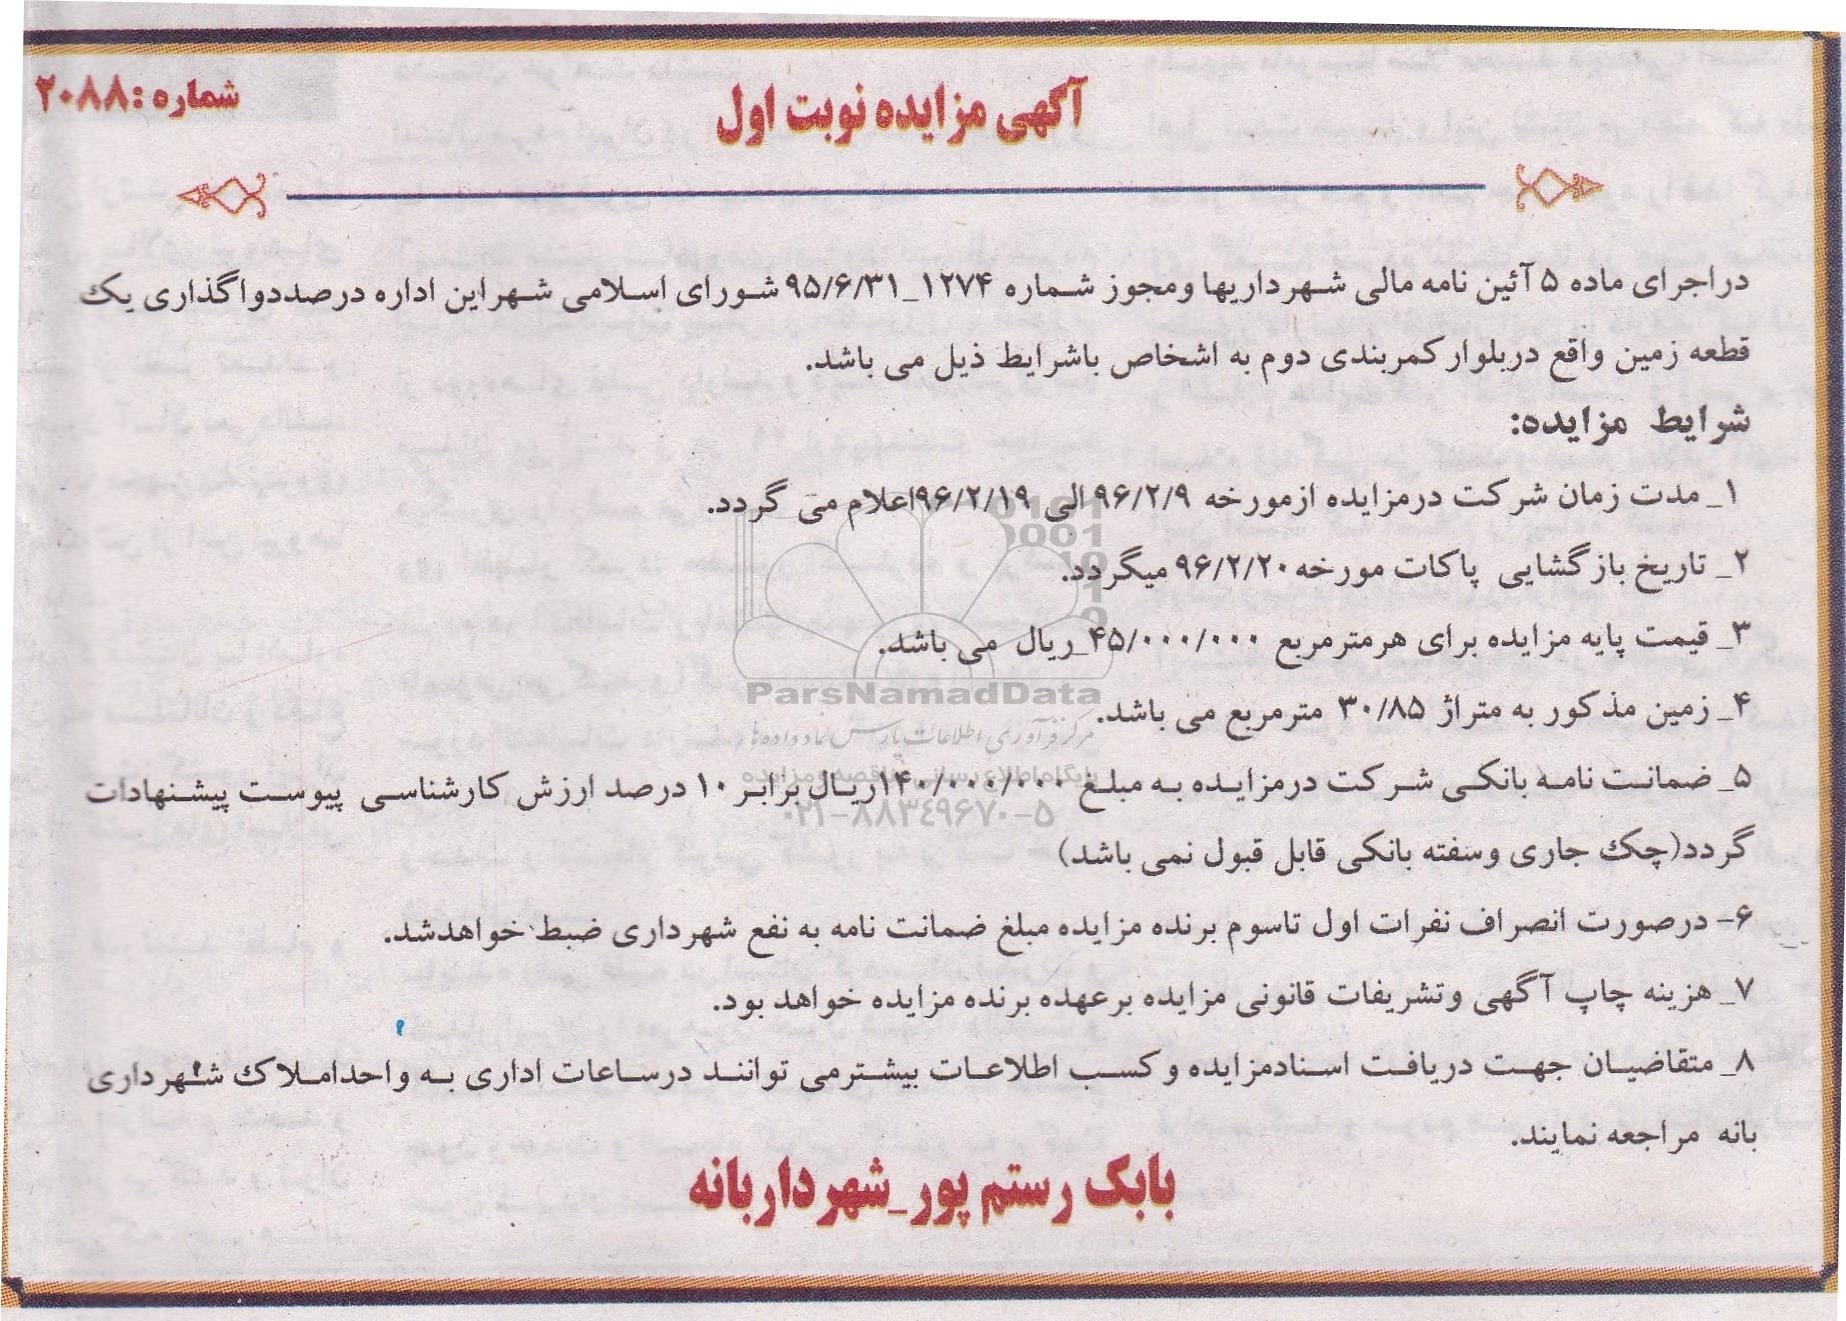 آگهی مزایده نوبت اول
شماره :۲۰۸۸
دراجرای ماده ۵ آئین نامه مالی شهرداریها ومجوز شماره ۱۲۷۴_۹۵/۶/۳۱ شورای اسلامی شهراین اداره درصددواگذاری یک
قطعه زمین واقع دربلوار کمربندی دوم به اشخاص باشرایط ذیل می باشد.
شرایط مزایده:
۱_ مدت زمان شرکت درمزایده ازمورخه ۹۶/۲/۹ الی ۹۶/۲/۱۹اعلام می گردد.
۲_ تاریخ بازگشایی پاکات مورخه ۹۶/۲/۲۰ میگردد.
۳_ قیمت پایه مزایده برای هرمترمربع ۴۵/۰۰۰/۰۰۰_ریال می باشد.
ParsNamadData
۴_ زمین مذکور به متراژ ۳۰/۸۵ مترمربع می باشد.
مرکز فرآوری اطلاعات پارس نماد داده ها
پایگاه اطلاع رسانی مناقصه و مزایده
۵_ ضمانت نامه بانکی شرکت درمزایده به مبلغ ۱۴۰/۰۰۰/۰۰۰ریال برابر ۱۰ درصد ارزش کارشناسی پیوست پیشنهادات
۰۲۱-۸۸۳۴۹۶۷۰-۵
گردد(چک جاری وسفته بانکی قابل قبول نمی باشد)
۶- درصورت انصراف نفرات اول تاسوم برنده مزایده مبلغ ضمانت نامه به نفع شهرداری ضبط خواهدشد.
۷_ هزینه چاپ آگهی وتشریفات قانونی مزایده برعهده برنده مزایده خواهد بود.
۸_ متقاضیان جهت دریافت اسنادمزایده وکسب اطلاعات بیشترمی توانند درساعات اداری به واحداملاک شهرداری
بانه مراجعه نمایند.
بابک رستم پور_شهرداربانه